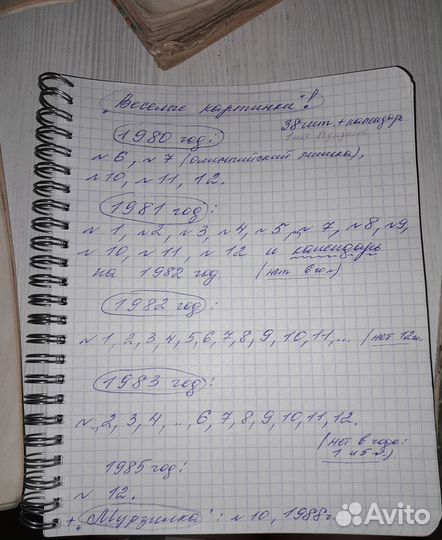 „Веселые картинки"!
38 шт. + календарь
1980 год:
№6, №7 (олимпийский мишка),
№10, №11, 12.
1981 год:
№1, №2, №3, №4, №5, №7, №8, №9,
№10, №11, №12 и календарь
на 1982 год (нет 6 го)
1982 год:
№1, 2, 3, 4, 5, 6, 7, 8, 9, 10, 11, ... (нет 12го.
1983 год:
№.., 2, 3, 4, .., 6, 7, 8, 9, 10, 11, 12.
(нет в годе:
1 и 5 №)
1985 год:
№ 12.
+ „Мурзилка": №10, 1988г.
Avito